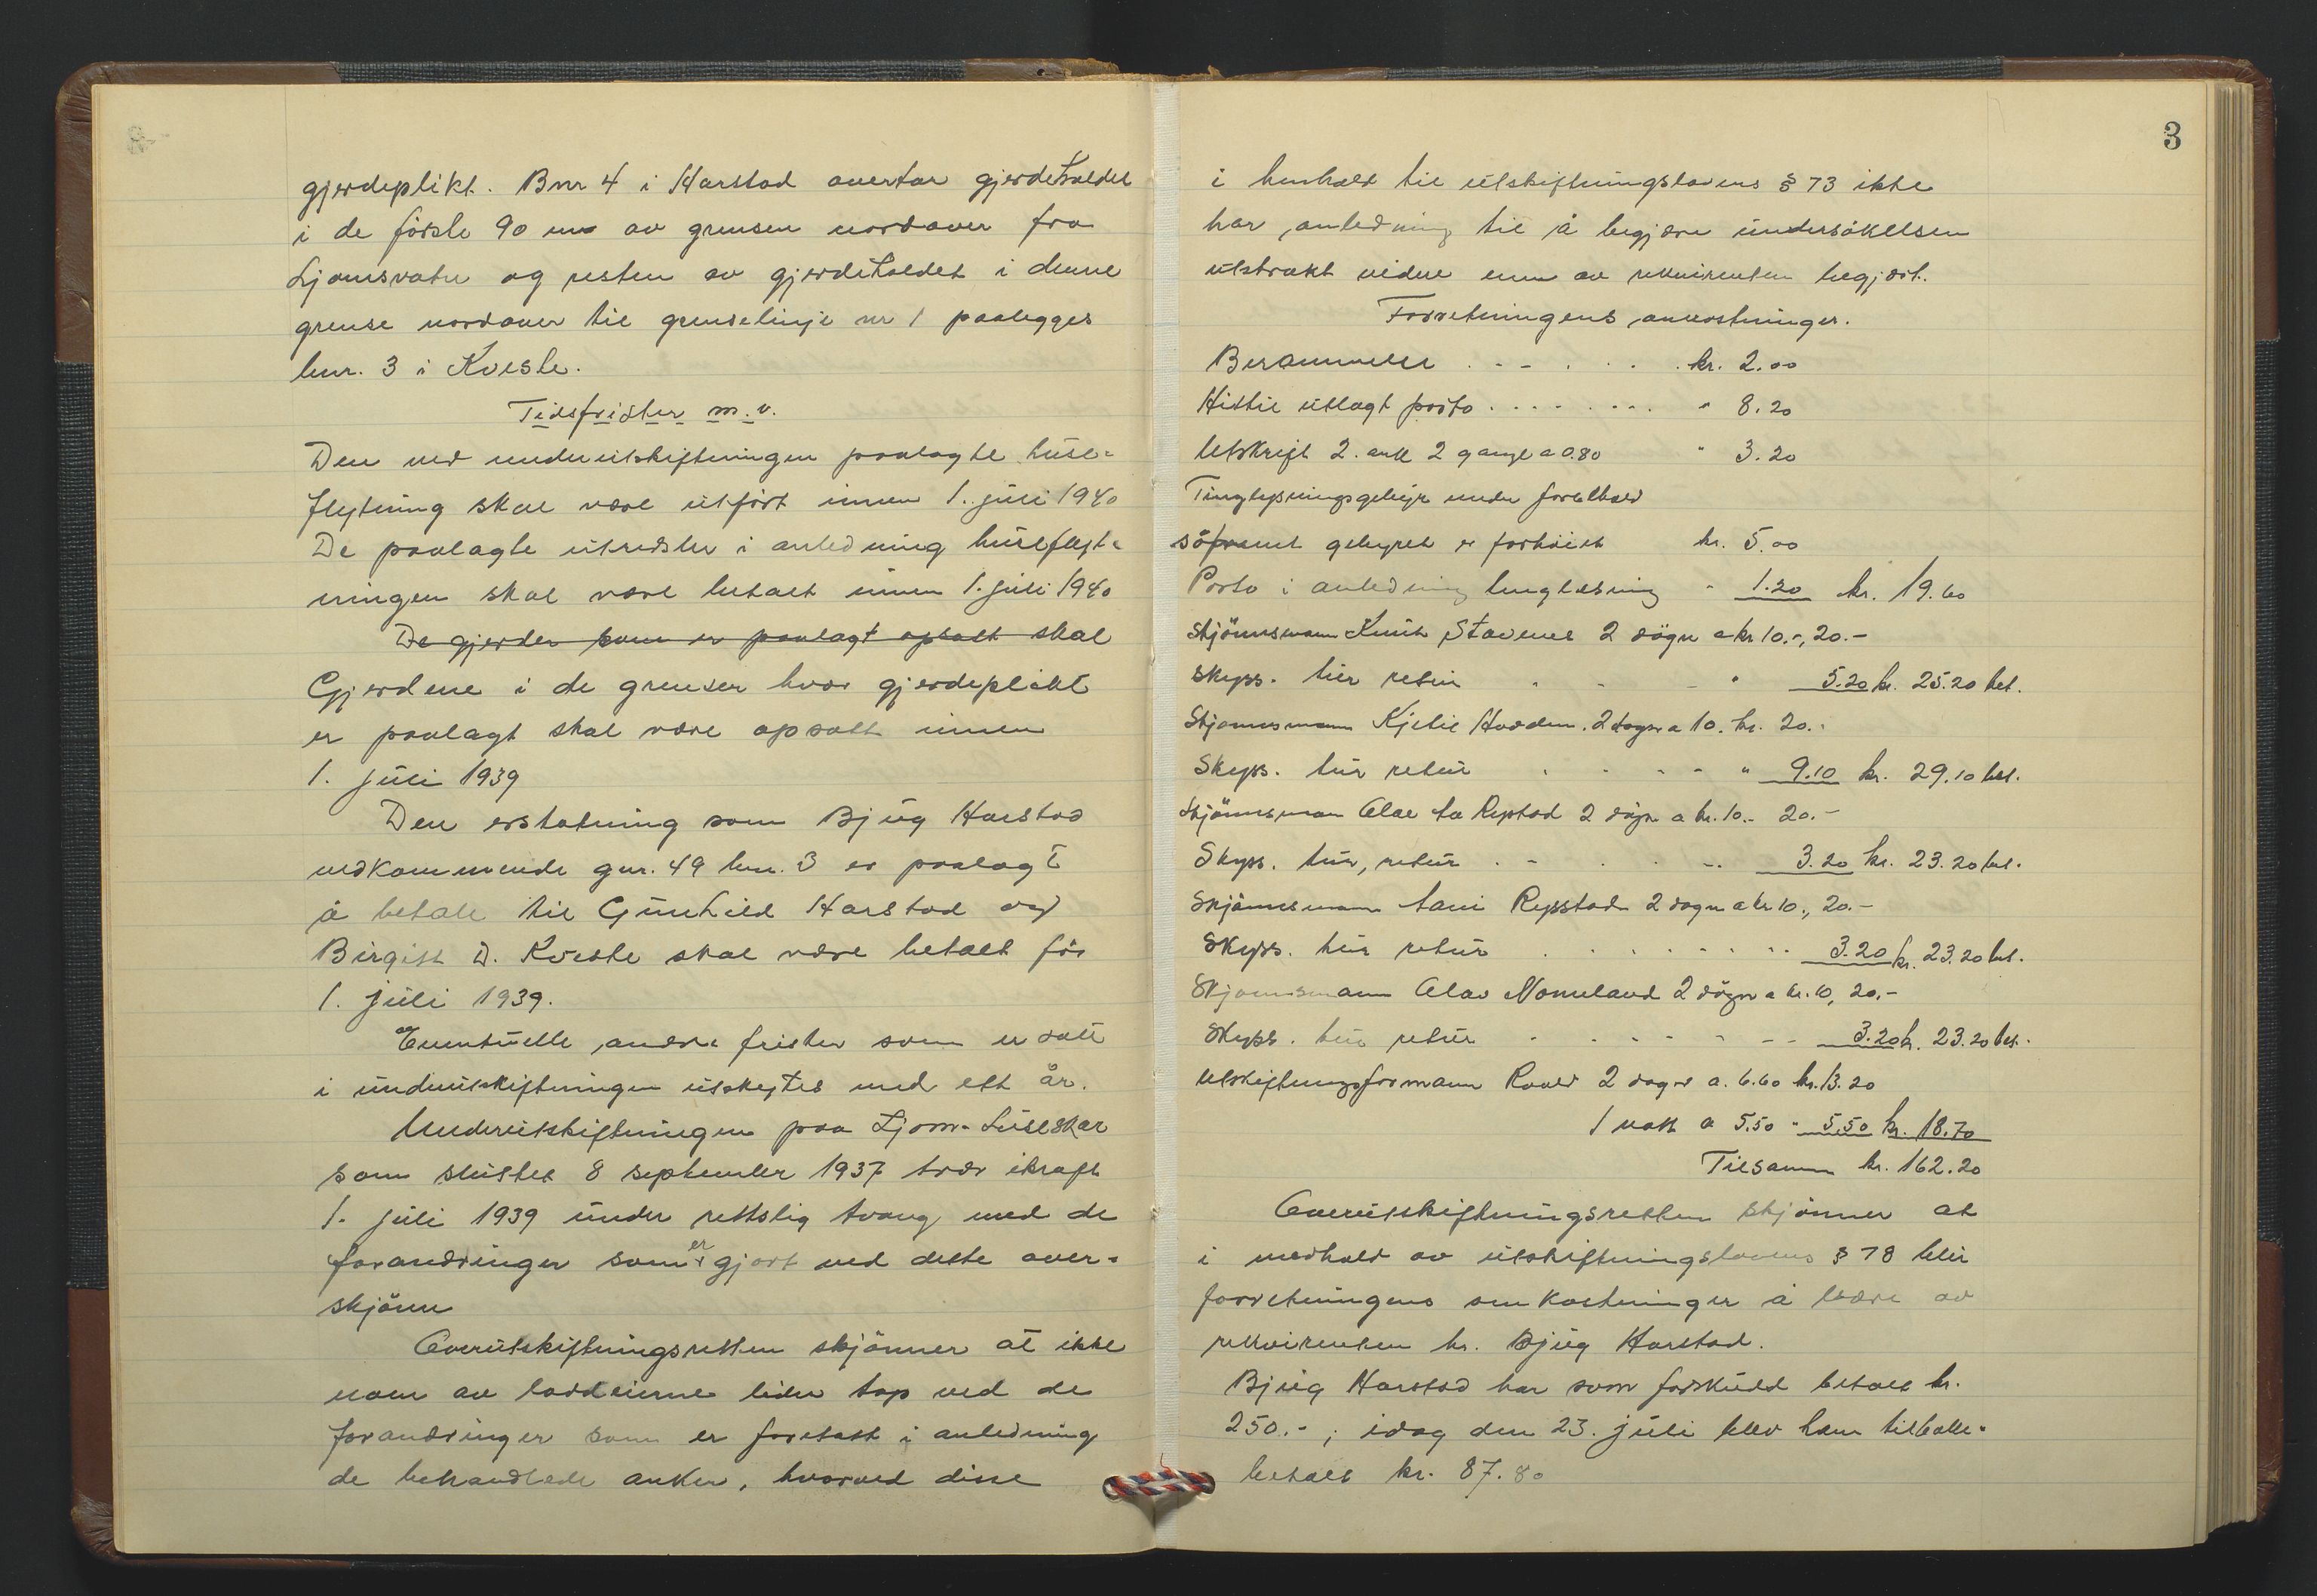 gjerdeplikt. Bnr 4 i Harstad overtar gjerdeholdet
i de förste 90 m av grensen nordover fra
Ljomsvatn og resten av gjerdeholdet i denne
grense nordover til grenselinje nr 1 paalegges
bnr. 3 i Kveste.
Tidsfrister m.v.
Den ved underutskiftningen paalagte huse-
flytning skal være utfört innen 1. juli 1940
De paalagte utredsler i anledning huseflyt-
ningen skal være betalt innen 1. juli 1940
De gjerder som er paalagt opsatt skal
Gjerdene i de grenser hvor gjerdeplikt
er paalagt skal være opsatt innen
1. juli 1939
Den erstatning som Bjug Harstad
vedkommende gnr. 49 bnr. 3 er paalagt
å betale til Gunhild Harstad og
Birgitt D. Kveste skal være betalt för
1. juli 1939.
Eventuelle andre frister som er satt
i underutskiftningen utskytes med ett år.
Underutskiftningen paa Ljom-Luseskar
som sluttet 8 september 1937 trær ikraft
1. juli 1939 under rettslig tvang med de
forandringer som er gjort ved dette over-
skjönn
Overutskiftningsretten skjönner at ikke
noen av loddeierne lider tap ved de
forandringer som er foretatt i anledning
de behandlede anker, hvorved disse
3
i henhold til utskiftningslovens § 73 ikke
har anledning til å begjære undersökelsen
utstrakt videre enn av rekvirenten begjært.
Forretningens omkostninger.
Berammelse . - - . . . . kr. 2.00
Hittil utlagt porto . . . . . . . . " 8.20
Utskrift 2. ark 2 gange a 0.80 " 3.20
Tinglysningsgebyr under forbehold
såfremt gebyret er forhöiet kr. 5.00
Porto i anledning tinglæsning " 1.20 kr. 19.60
Skjönnsmann Knut Stavenes 2 dögn a kr 10.-, 20.-
Skyss. tur retur . - - " 5.20 kr. 25.20 bet.
Skjönnsmann Kjetil Hovden. 2 dögn a 10. kr. 20.-
Skyss. tur retur . . - - " 9.10 kr. 29.10 bet.
Skjönnsman Olav Rystad 2 dögn a kr. 10.- 20.-
Skyss. tur, retur . - . . - . 3.20 kr. 23.20 bet.
Skjönnsmann Rysstad 2 dögn a kr 10., 20.-
Skyss. tur retur . . . . . . . 3.20 kr. 23.20 bet.
Skjönnsmann Olav Nomeland 2 dögn a kr. 10, 20.-
Skyss. tur retur . . - - - - - 3.20 kr. 23.20 bet.
Utskiftningsformann Roald 2 dager a. 6.60 kr. 13.20
1 natt a 5.50 " 5.50 kr. 18.70
Tilsamm kr. 162.20
Overutskiftningsretten skjönner at
i medhold av utskiftningslovens § 78 blir
forretningens omkostninger å bære av
rekvirenten hr. Bjug Harstad.
Bjug Harstad har som forskudd betalt kr.
250.- ; idag den 23. juli blev ham tilbake-
betalt kr. 87.80